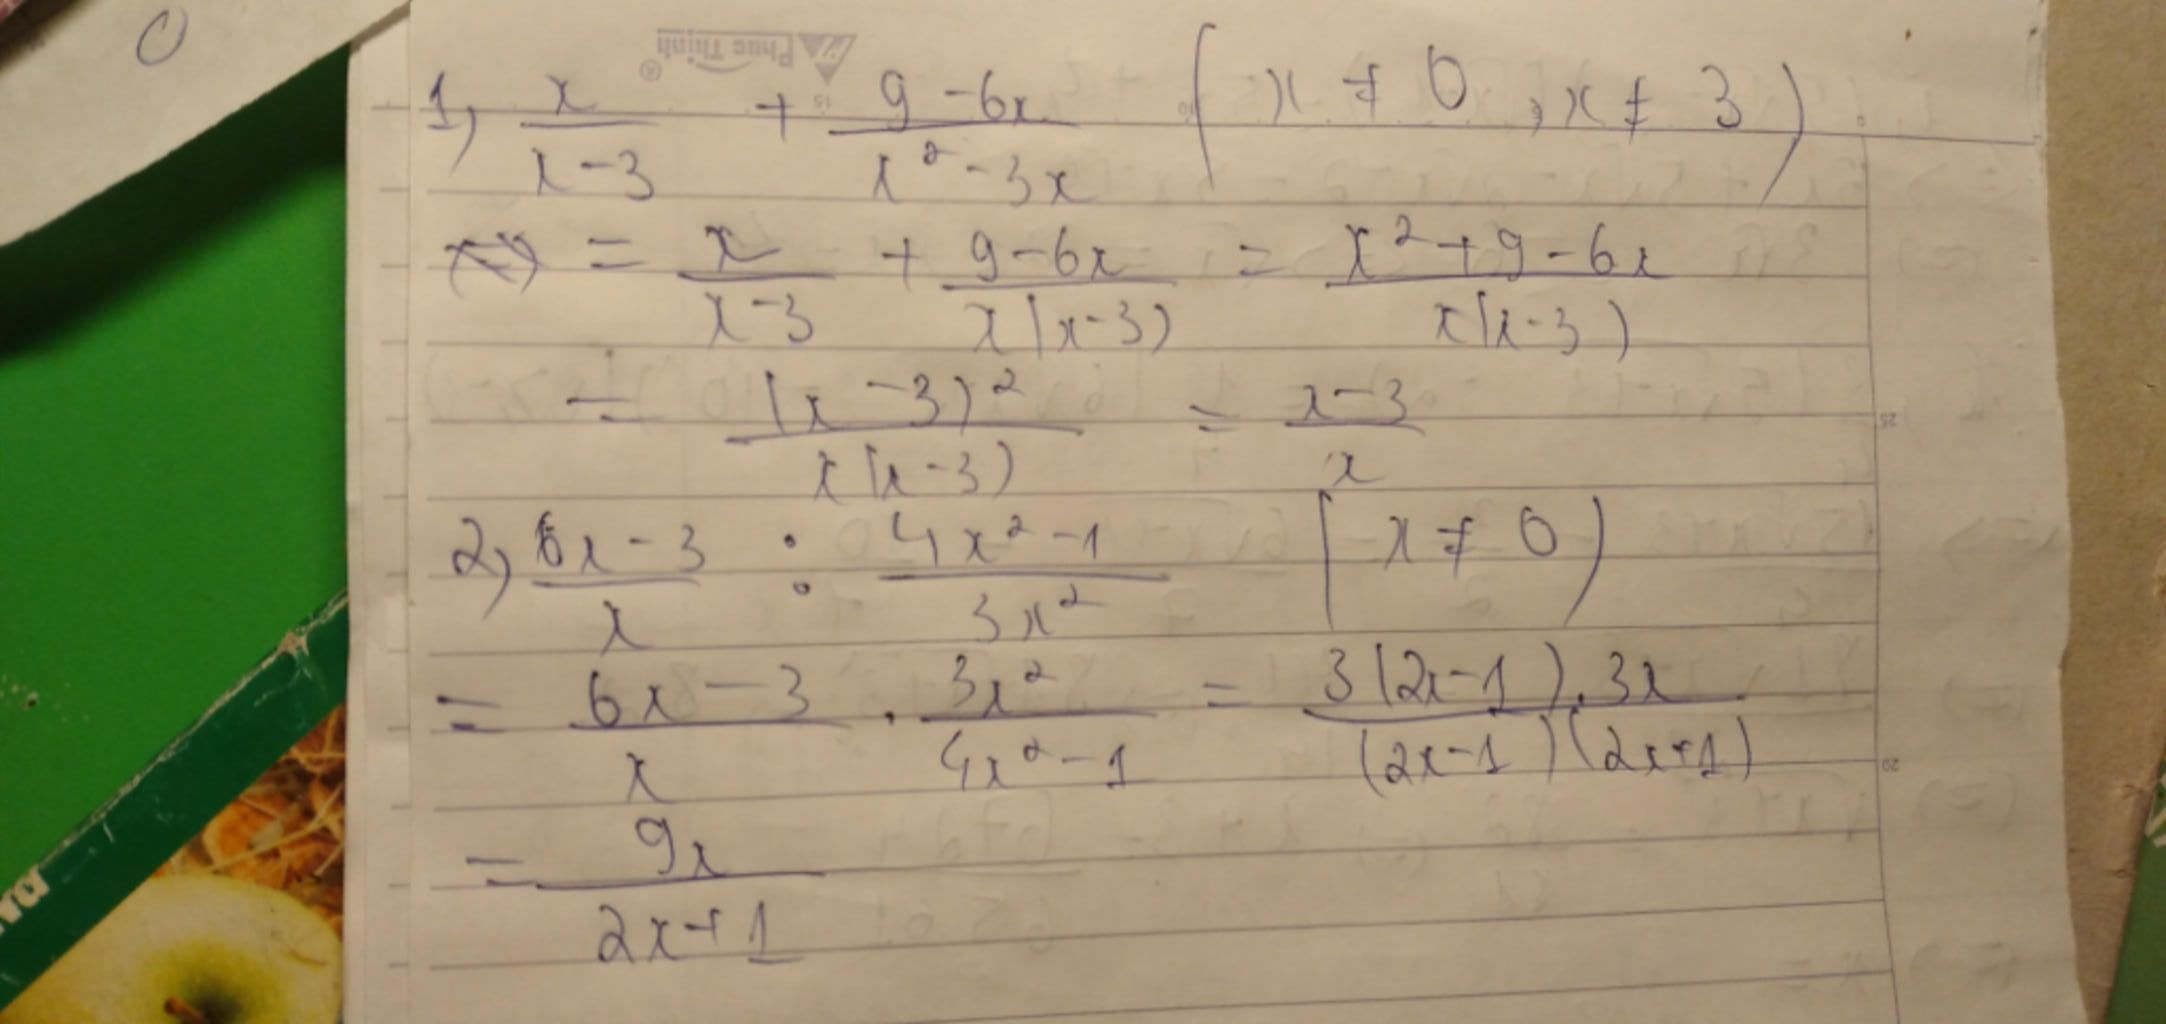 Phuc Thinh ®
1, x/(x-3) + (9-6x)/(x²-3x) (x ≠ 0, x ≠ 3)
= x/(x-3) + (9-6x)/(x(x-3)) = (x²+9-6x)/(x(x-3))
= (x-3)²/(x(x-3)) = (x-3)/x
2, (6x-3)/x : (4x²-1)/(3x²) (x ≠ 0)
= (6x-3)/x . 3x²/(4x²-1) = (3(2x-1).3x)/((2x-1)(2x+1))
= 9x/(2x+1)